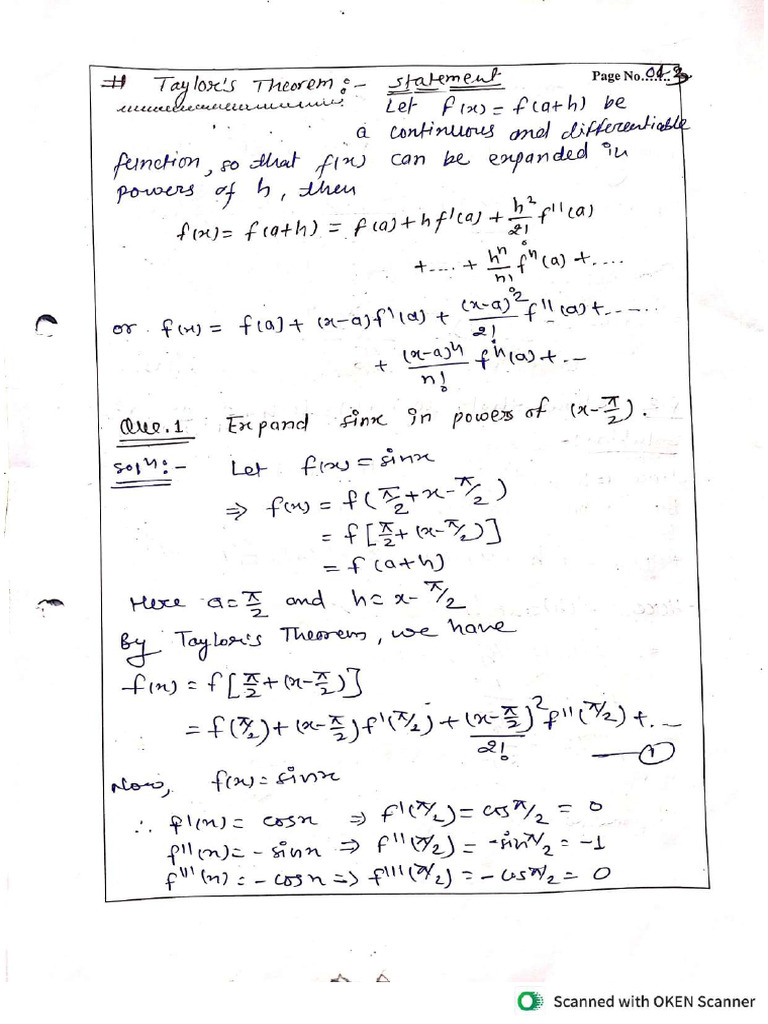 # Taylor's Theorem :- Statement Page No. 01
Let f(x) = f(a+h) be
a continuous and differentiable
function, so that f(x) can be expanded in
powers of h, then
f(x) = f(a+h) = f(a) + h f'(a) + h²/2! f''(a)
+ .... + hⁿ/n! fⁿ(a) + ....
or f(x) = f(a) + (x-a) f'(a) + (x-a)²/2! f''(a) + ......
+ (x-a)ⁿ/n! fⁿ(a) + ...
Que.1 Expand sinx in powers of (x-π/2).
Solⁿ:- Let f(x) = sinx
⇒ f(x) = f(π/2 + x - π/2)
= f[π/2 + (x-π/2)]
= f(a+h)
Here a = π/2 and h = x - π/2
By Taylor's Theorem, we have
f(x) = f[π/2 + (x-π/2)]
= f(π/2) + (x-π/2) f'(π/2) + (x-π/2)²/2! f''(π/2) + ...
— ①
Now, f(x) = sinx
∴ f'(x) = cosx ⇒ f'(π/2) = cosπ/2 = 0
f''(x) = - sinx ⇒ f''(π/2) = -sinπ/2 = -1
f'''(x) = - cosx ⇒ f'''(π/2) = - cosπ/2 = 0
Scanned with OKEN Scanner